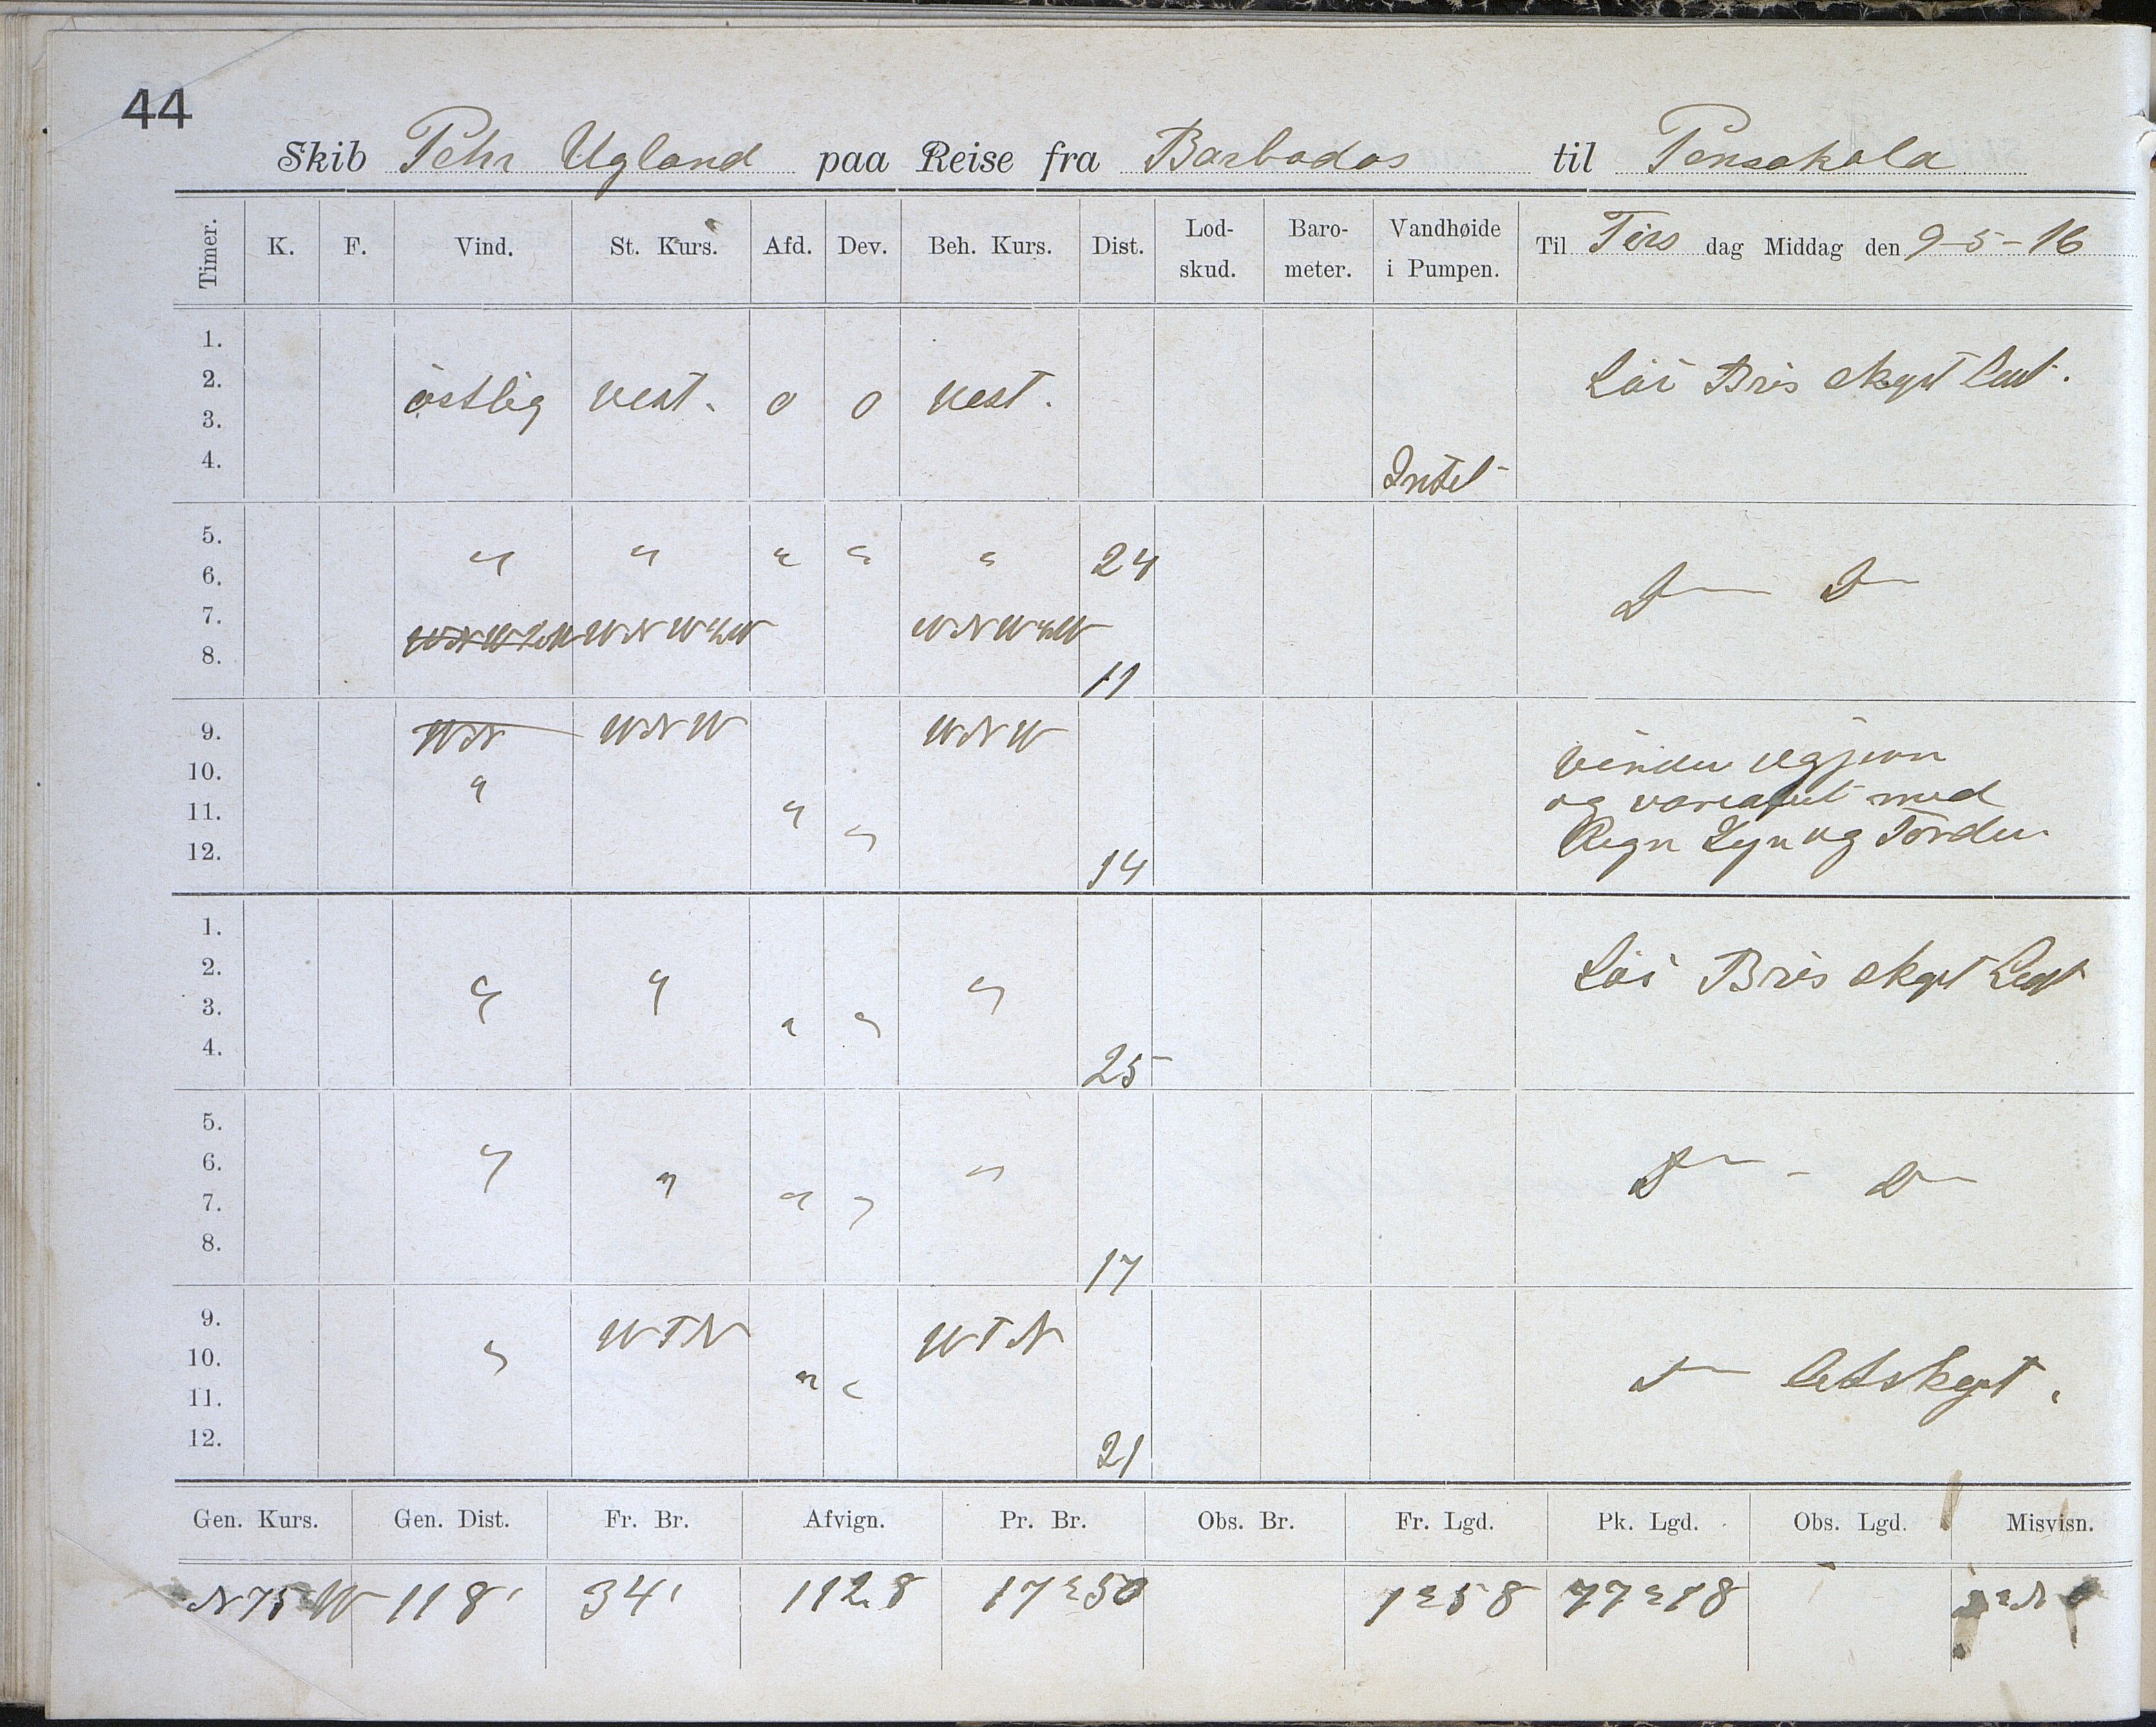 44
Skib Pehr Ugland paa Reise fra Barbados til Pensakola
Timer. K. F. Vind. St. Kurs. Afd. Dev. Beh. Kurs. Dist. Lod-skud. Baro-meter. Vandhøide i Pumpen. Til Tirs dag Middag den 9-5-16
1.
2. Løi Bris skyet Luft.
3. östlig vest. 0 0 vest.
4. Intet
5.
6. " " " " " 24 D— D—
7. WNW½W WNW½W WNW½W
8. 11
9. WN WNW WNW
10. " og variabel med
11. " "
12. 14 Regn Lyn og Torden
1.
2. " " " Løi Bris skyet Luft
3. " "
4. 25
5.
6. " " " D— - D—
7. " "
8. 17
9. WTN WTN
10. " D— Letskyet.
11. " "
12. 21
Gen. Kurs. Gen. Dist. Fr. Br. Afvign. Pr. Br. Obs. Br. Fr. Lgd. Pk. Lgd. Obs. Lgd. Misvisn.
N75W 118' 34' 112.8 17°50 1°58 77°18